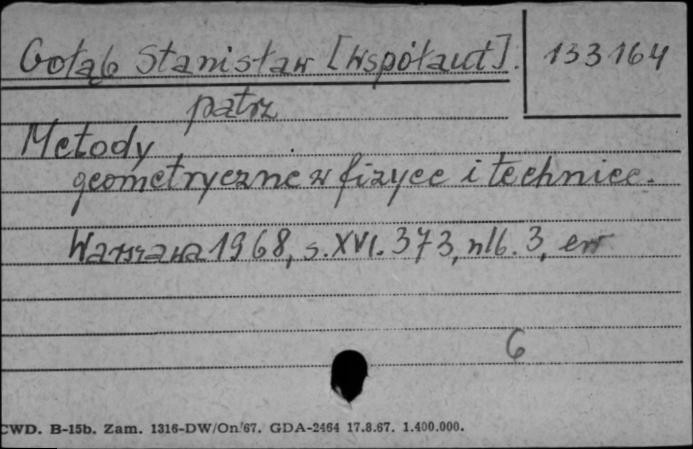 Gołąb Stanisław [współaut]. 133164
patrz
Metody
geometryczne w fizyce i technice.
Warszawa 1968, s. XVI. 373, nlb. 3, err
6
CWD. B-15b. Zam. 1316-DW/On/67. GDA-2464 17.8.67. 1.400.000.